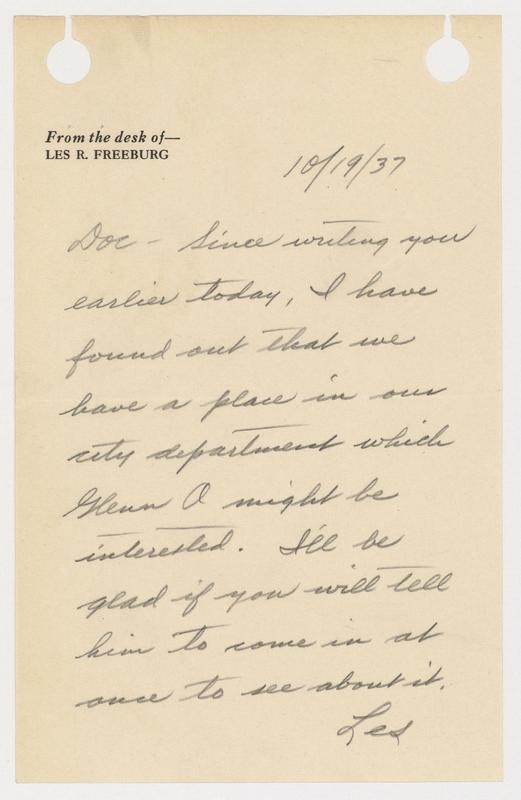 From the desk of—
LES R. FREEBURG
10/19/37
Doc - Since writing you
earlier today, I have
found out that we
have a place in our
city department which
Glenn O might be
interested. I'll be
glad if you will tell
him to come in at
once to see about it.
Les